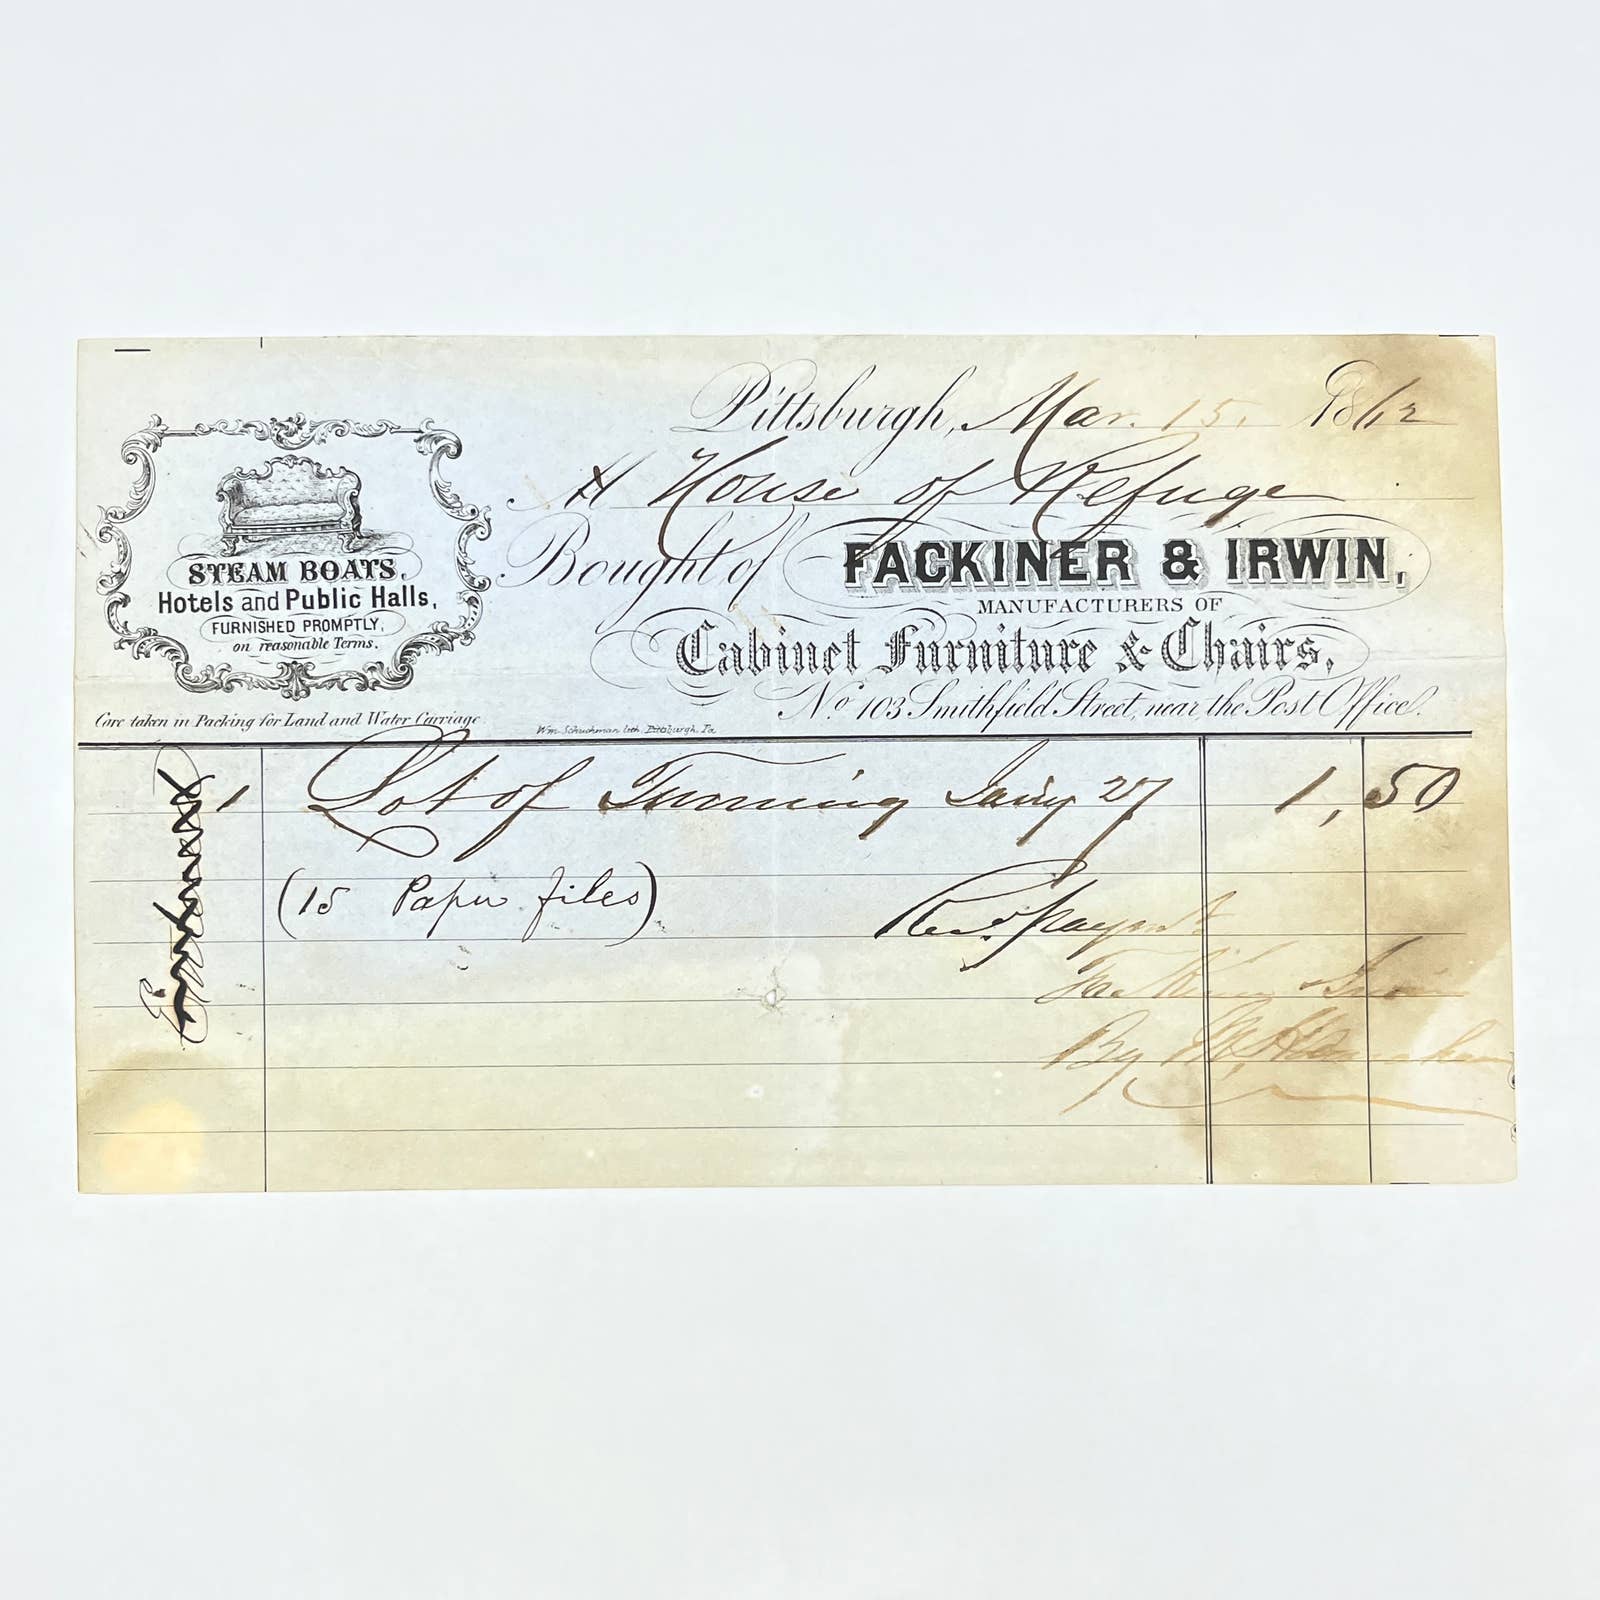 Pittsburgh, Mar. 15, 1862
House of Refuge
Bought of FACKINER & IRWIN,
MANUFACTURERS OF
Cabinet Furniture & Chairs,
No. 103 Smithfield Street, near the Post Office.
STEAM BOATS,
Hotels and Public Halls,
FURNISHED PROMPTLY,
on reasonable Terms.
Care taken in Packing for Land and Water Carriage
Wm. Schuchman lith. Pittsburgh, Pa
1 Lot of Turning Jany 27 1,50
(15 Paper files)
Recd. Payment
Fackiner & Irwin
By